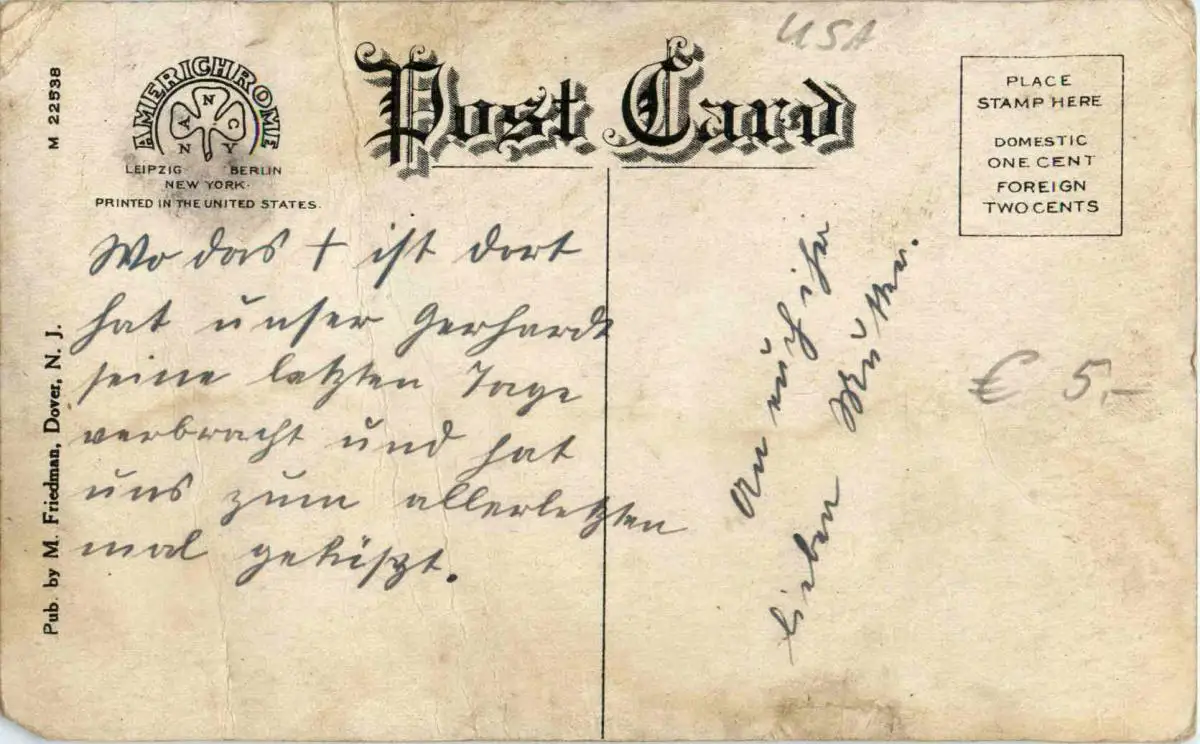 USA
M 22538
AMERICHROME
A N C
N Y
LEIPZIG BERLIN
NEW YORK.
PRINTED IN THE UNITED STATES.
Post Card
PLACE
STAMP HERE
DOMESTIC
ONE CENT
FOREIGN
TWO CENTS
Pub. by M. Friedman, Dover, N. J.
Wo das + ist dort
hat unser Gerhardt
seine letzten Tage
verbracht und hat
uns zum allerletzten
mal geküßt.
An euch ihr
lieben Mütter.
€ 5,-